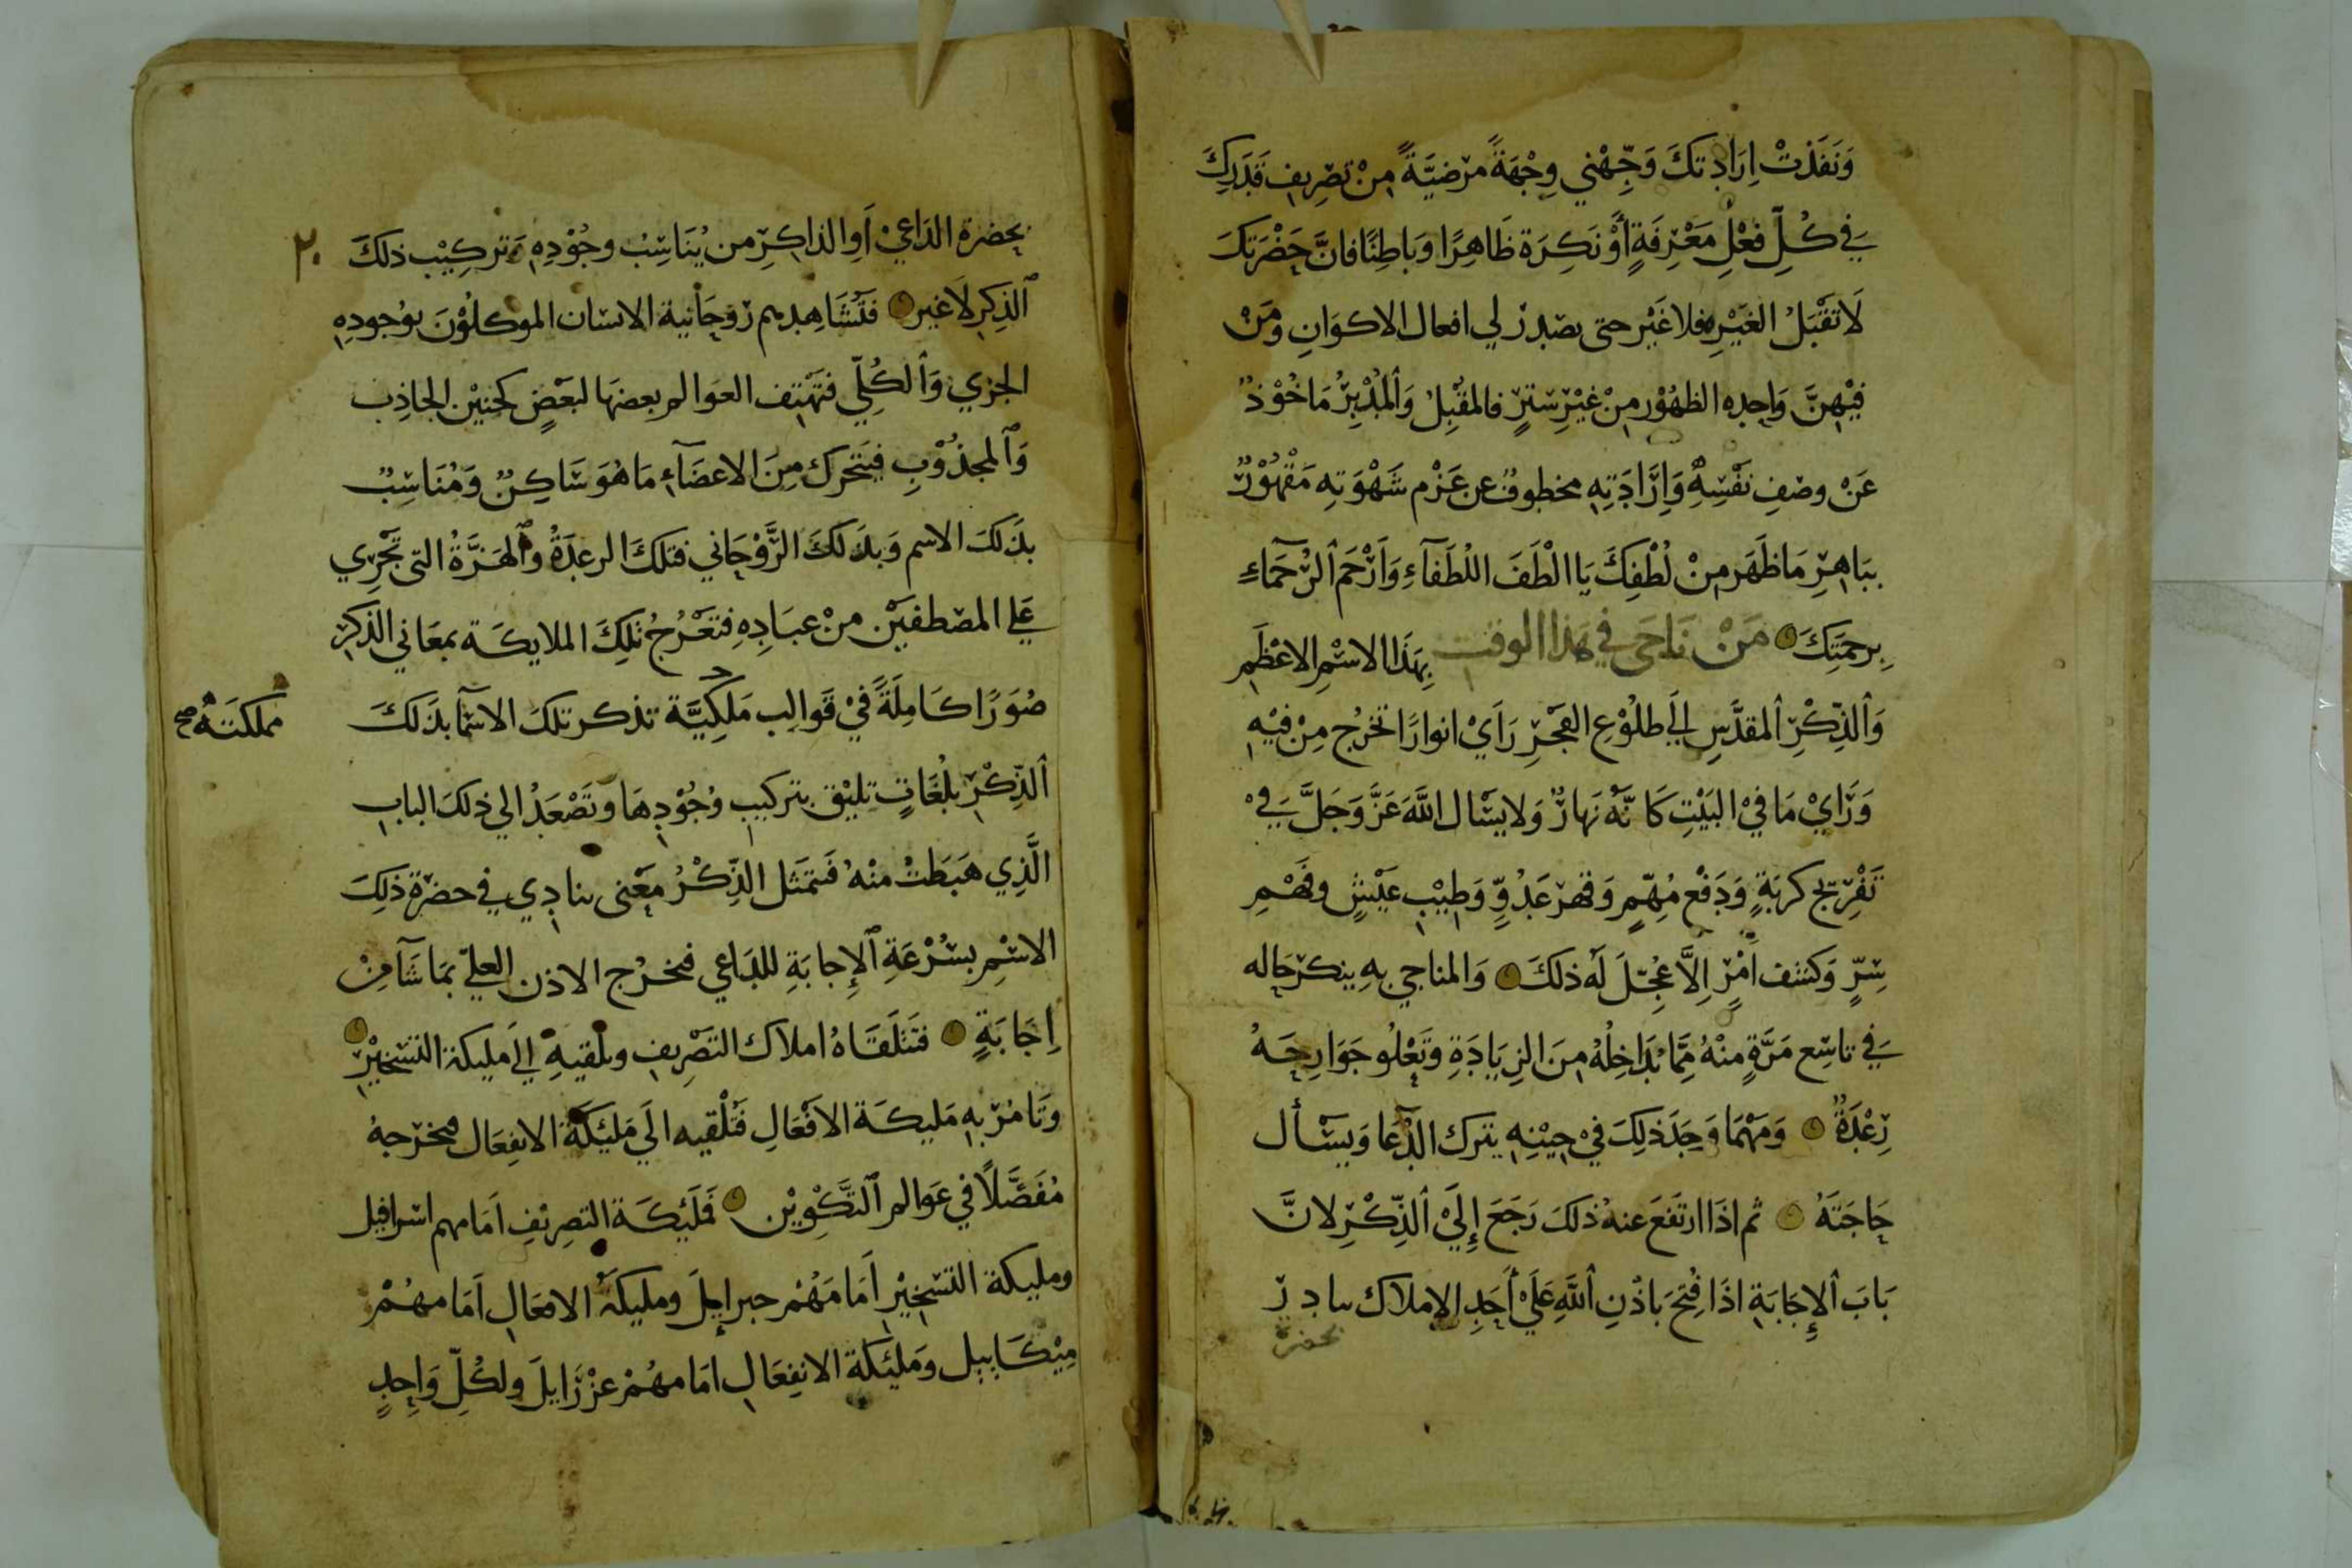 وَنَفَذَتْ اِرَادتكَ وَجِّهْني وِجْهَةً مرضيَّةً مِنْ تصْرِيفِ قَدَرِكَ
في كُلِّ فعْلِ مَعْرِفَةٍ أَوْ نَكِرَة ظَاهِرًا وَبَاطِنًا فانَّ حَضْرَتكَ
لَا تَقْبَلُ الغَيْرِ فلا غَيْر حتى يصْدرَ لي افعال الاكوَانِ وَمَنْ
فيْهِنَّ وَاحِده الظهُوْر مِنْ غيْرِ سَترٍ فالمقْبِلُ وَالمُدْبِرُ مَاخُوْذٌ
عَنْ وصْفِ نَفْسِهِ وَإِرَادَتِهِ مخطوفٌ عن عَزْم شَهْوَتِهِ مَقْهُوْرٌ
ببَاهِرِ مَا ظَهَر مِنْ لُطْفِكَ يَا الْطَفَ اللُطَفَآءِ وَاَرْحَمَ الرُّحَمَآءِ
بِرحمَتِكَ مَنْ نَاجَى في هَذا الوقت بِهَذَا الاسْمِ الاعْظَمِ
وَالذِّكْرِ المقدَّسِ اِلَي طلُوْعِ الفَجْرِ رَاَيْ انوارًا تخرُج مِنْ فِيْهِ
وَرَايْ مَا فيْ البَيْتِ كَانَّهُ نَهارٌ وَلا يسَال اللَّهَ عَزَّ وَجَلَّ فيْ
تَفْرِيج كربَةٍ وَدَفْع مُهِمّ وَقهر عَدُوٍّ وَطِيْب عَيْشٍ وفَهْمِ
سِرٍّ وَكشف اَمْرٍ اِلاَّ عُجِّلَ لَهُ ذلكَ وَالمناجي بهِ ينكر حَاله
في تاسِع مَرَّةٍ مِنْهُ مِمَّا يُدَاخِلُهُ مِنَ الزِيَادَةِ وَتَعْلُو جَوَارِحَهُ
رِعْدَةٌ وَمَهْمَا وَجَدَ ذلِكَ فيْ حِيْنِهِ يترك الدُّعَا وَيسْأل
حَاجَتَهُ ثم اذَا ارتَفَعَ عنهُ ذلكَ رَجَعَ إِلَيْ الذِّكْرِ لانَّ
بَابَ الإِجَابَةِ اذَا فُتِحَ بَاذْنِ اللَّهِ عَلَيْ أَحَدِ الامْلَاك
بحضرة
بحضرة الدَاعيْ اَوِ الذاكِرِ من يُنَاسِبُ وجُوْدِهِ وَتركِيْب ذلكَ
٢٠
الذِكِرِ لَا غير فتُشَاهِد روحَانية الانسَان الموكلُوْنَ بوُجودِهِ
الجزي وَالكُلِيّ فتَهْتِف العَوالم بعضهَا لبَعْضٍ كحنيْن الجاذِب
وَالمجذُوْبِ فيَتَحَرك مِنَ الاعضَآءِ مَا هُوَ سَاكِنٌ وَمُنَاسِبٌ
بذَلكَ الاسم وَبذَلكَ الرَّوْحَاني فتلكَ الرعدَةُ وَالهَزَّةُ التى تَجْرِي
عَلي المصْطفيْن مِنْ عبَادِهِ فتَعْرُجُ تلِكَ الملايكَة بمعَاني الذكر
صُوَرًا كَامِلَةً فيْ قَوالِب مَلَكيَّة تذكر تلكَ الاسْمآ بذَلكَ
مملكتَهُ صح
الذِّكْرِ بلُغَاتٍ تليْق بتركيبِ وُجُوْدِهَا وتَصْعَدُ الي ذلكَ البابِ
الَّذِي هَبَطَتْ مِنْهُ فتمَثل الذِّكْرُ مَعْنى ينادي في حضرَةِ ذلِكَ
الاسْمِ بسُرْعَةِ الإِجابَةِ للدَاعي فخرُج الاذن العليّ بمَا شَآ مِنْ
اِجَابَةٍ فتَتَلَقَّاهُ املاك التَصْرِيفِ وتلقيهِ اِلَي مليكة التسْخِيْرِ
وَتَامُرْ بهِ مَليكَة الافْعَالِ فتُلْقيه الَي مَلِئكَة الانفِعَال فخرجهُ
مُفَصَّلًا في عَوالم التَّكْوِيْن فَمَلَئِكَة التصرِيْفِ اَمَامهم اسْرافيل
ومليكة التسْخِيْرِ اَمَامَهُمْ جبرإيل ومليكَةُ الافعَالِ اَمَامهُمْ
مِيْكَاييل وَمَلِئكَة الانفِعَال امَامهُمْ عزْرَايلَ ولكُلِّ وَاحِدٍ